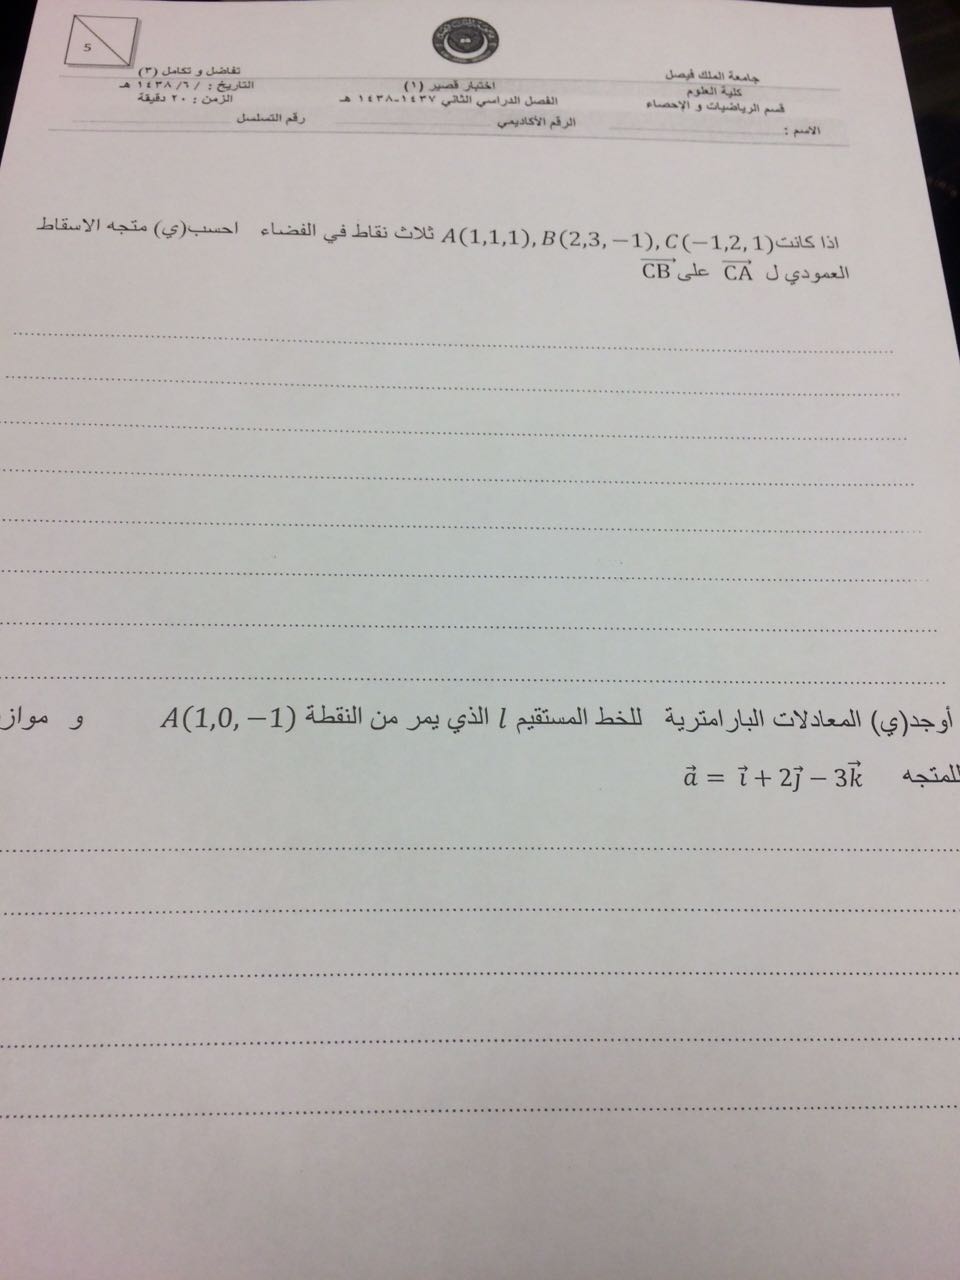 جامعة الملك فيصل
كلية العلوم
قسم الرياضيات و الإحصاء
الاسم :
اختبار قصير (١)
الفصل الدراسي الثاني ١٤٣٧-١٤٣٨ هـ
الرقم الأكاديمي
5
تفاضل و تكامل (٣)
التاريخ : / /٦ ١٤٣٨ هـ
الزمن : ٢٠ دقيقة
رقم التسلسل
اذا كانت A(1,1,1), B(2,3,−1), C(−1,2,1) ثلاث نقاط في الفضاء احسب(ي) متجه الاسقاط
العمودي ل CA على CB
أوجد(ي) المعادلات البارامترية للخط المستقيم l الذي يمر من النقطة A(1,0,−1) و مواز
للمتجه a⃗ = i⃗ + 2j⃗ − 3k⃗